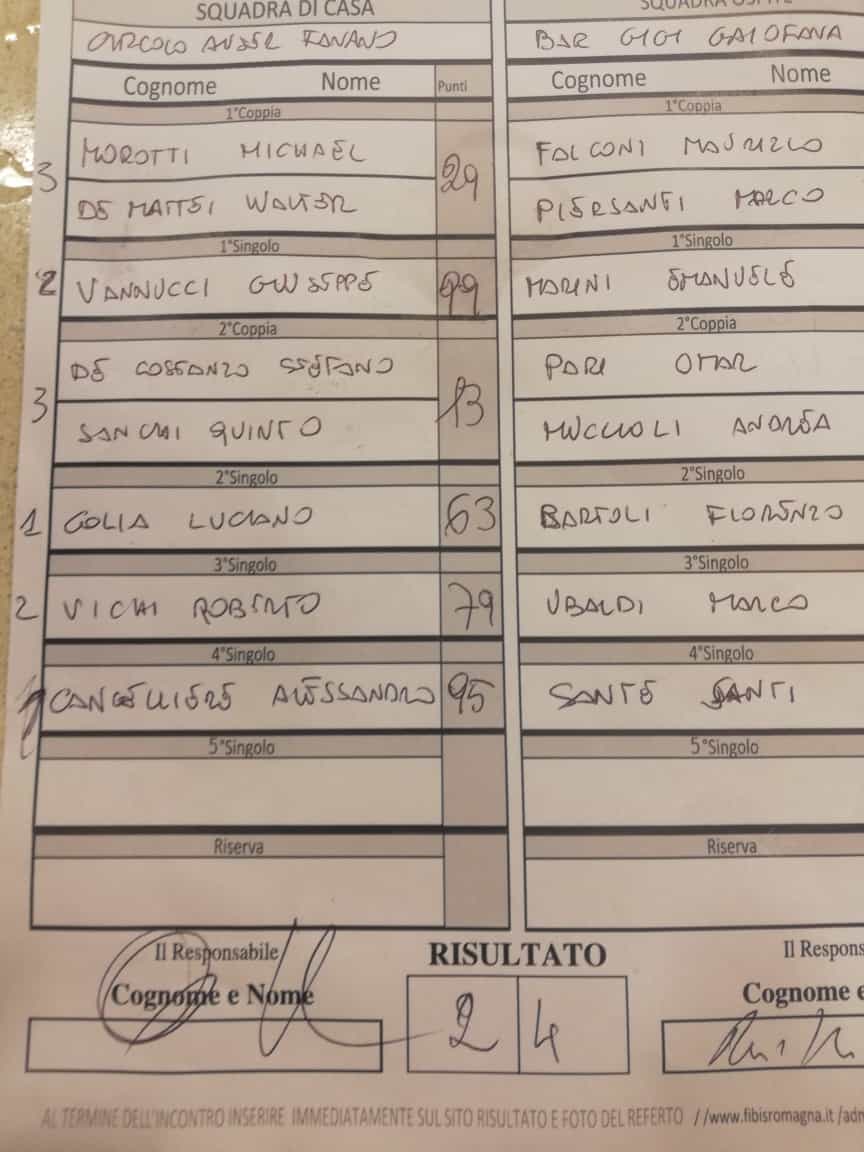 SQUADRA DI CASA
SQUADRA OSPITE
CIRCOLO AUSER FANANO
BAR GIGI GAIOFANA
Cognome Nome Punti
Cognome Nome
1°Coppia
1°Coppia
3 MOROTTI MICHAEL 29
FALCONI MAURIZIO
DE MATTEI WALTER
PIERSANTI MARCO
1°Singolo
1°Singolo
2 VANNUCCI GIUSEPPE 99
MARINI EMANUELE
2°Coppia
2°Coppia
3 DE COSTANZO STEFANO 13
PARI OMAR
SANCHI QUINTO
MUCCIOLI ANDREA
2°Singolo
2°Singolo
1 GOLIA LUCIANO 63
BARTOLI FIORENZO
3°Singolo
3°Singolo
2 VICHI ROBERTO 79
UBALDI MARCO
4°Singolo
4°Singolo
CANCELLIERE ALESSANDRO 95
SANTE SANTI
5°Singolo
5°Singolo
Riserva
Riserva
Il Responsabile
RISULTATO
Il Respons
Cognome e Nome
Cognome e
2 4
AL TERMINE DELL'INCONTRO INSERIRE IMMEDIATAMENTE SUL SITO RISULTATO E FOTO DEL REFERTO //www.fibisromagna.it/adm